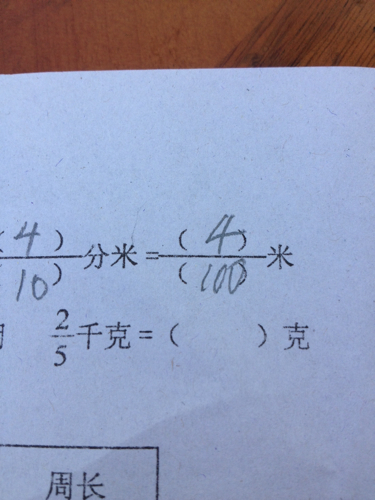 (4)/(10)分米=(4)/(100)米
2/5千克=( )克
周长